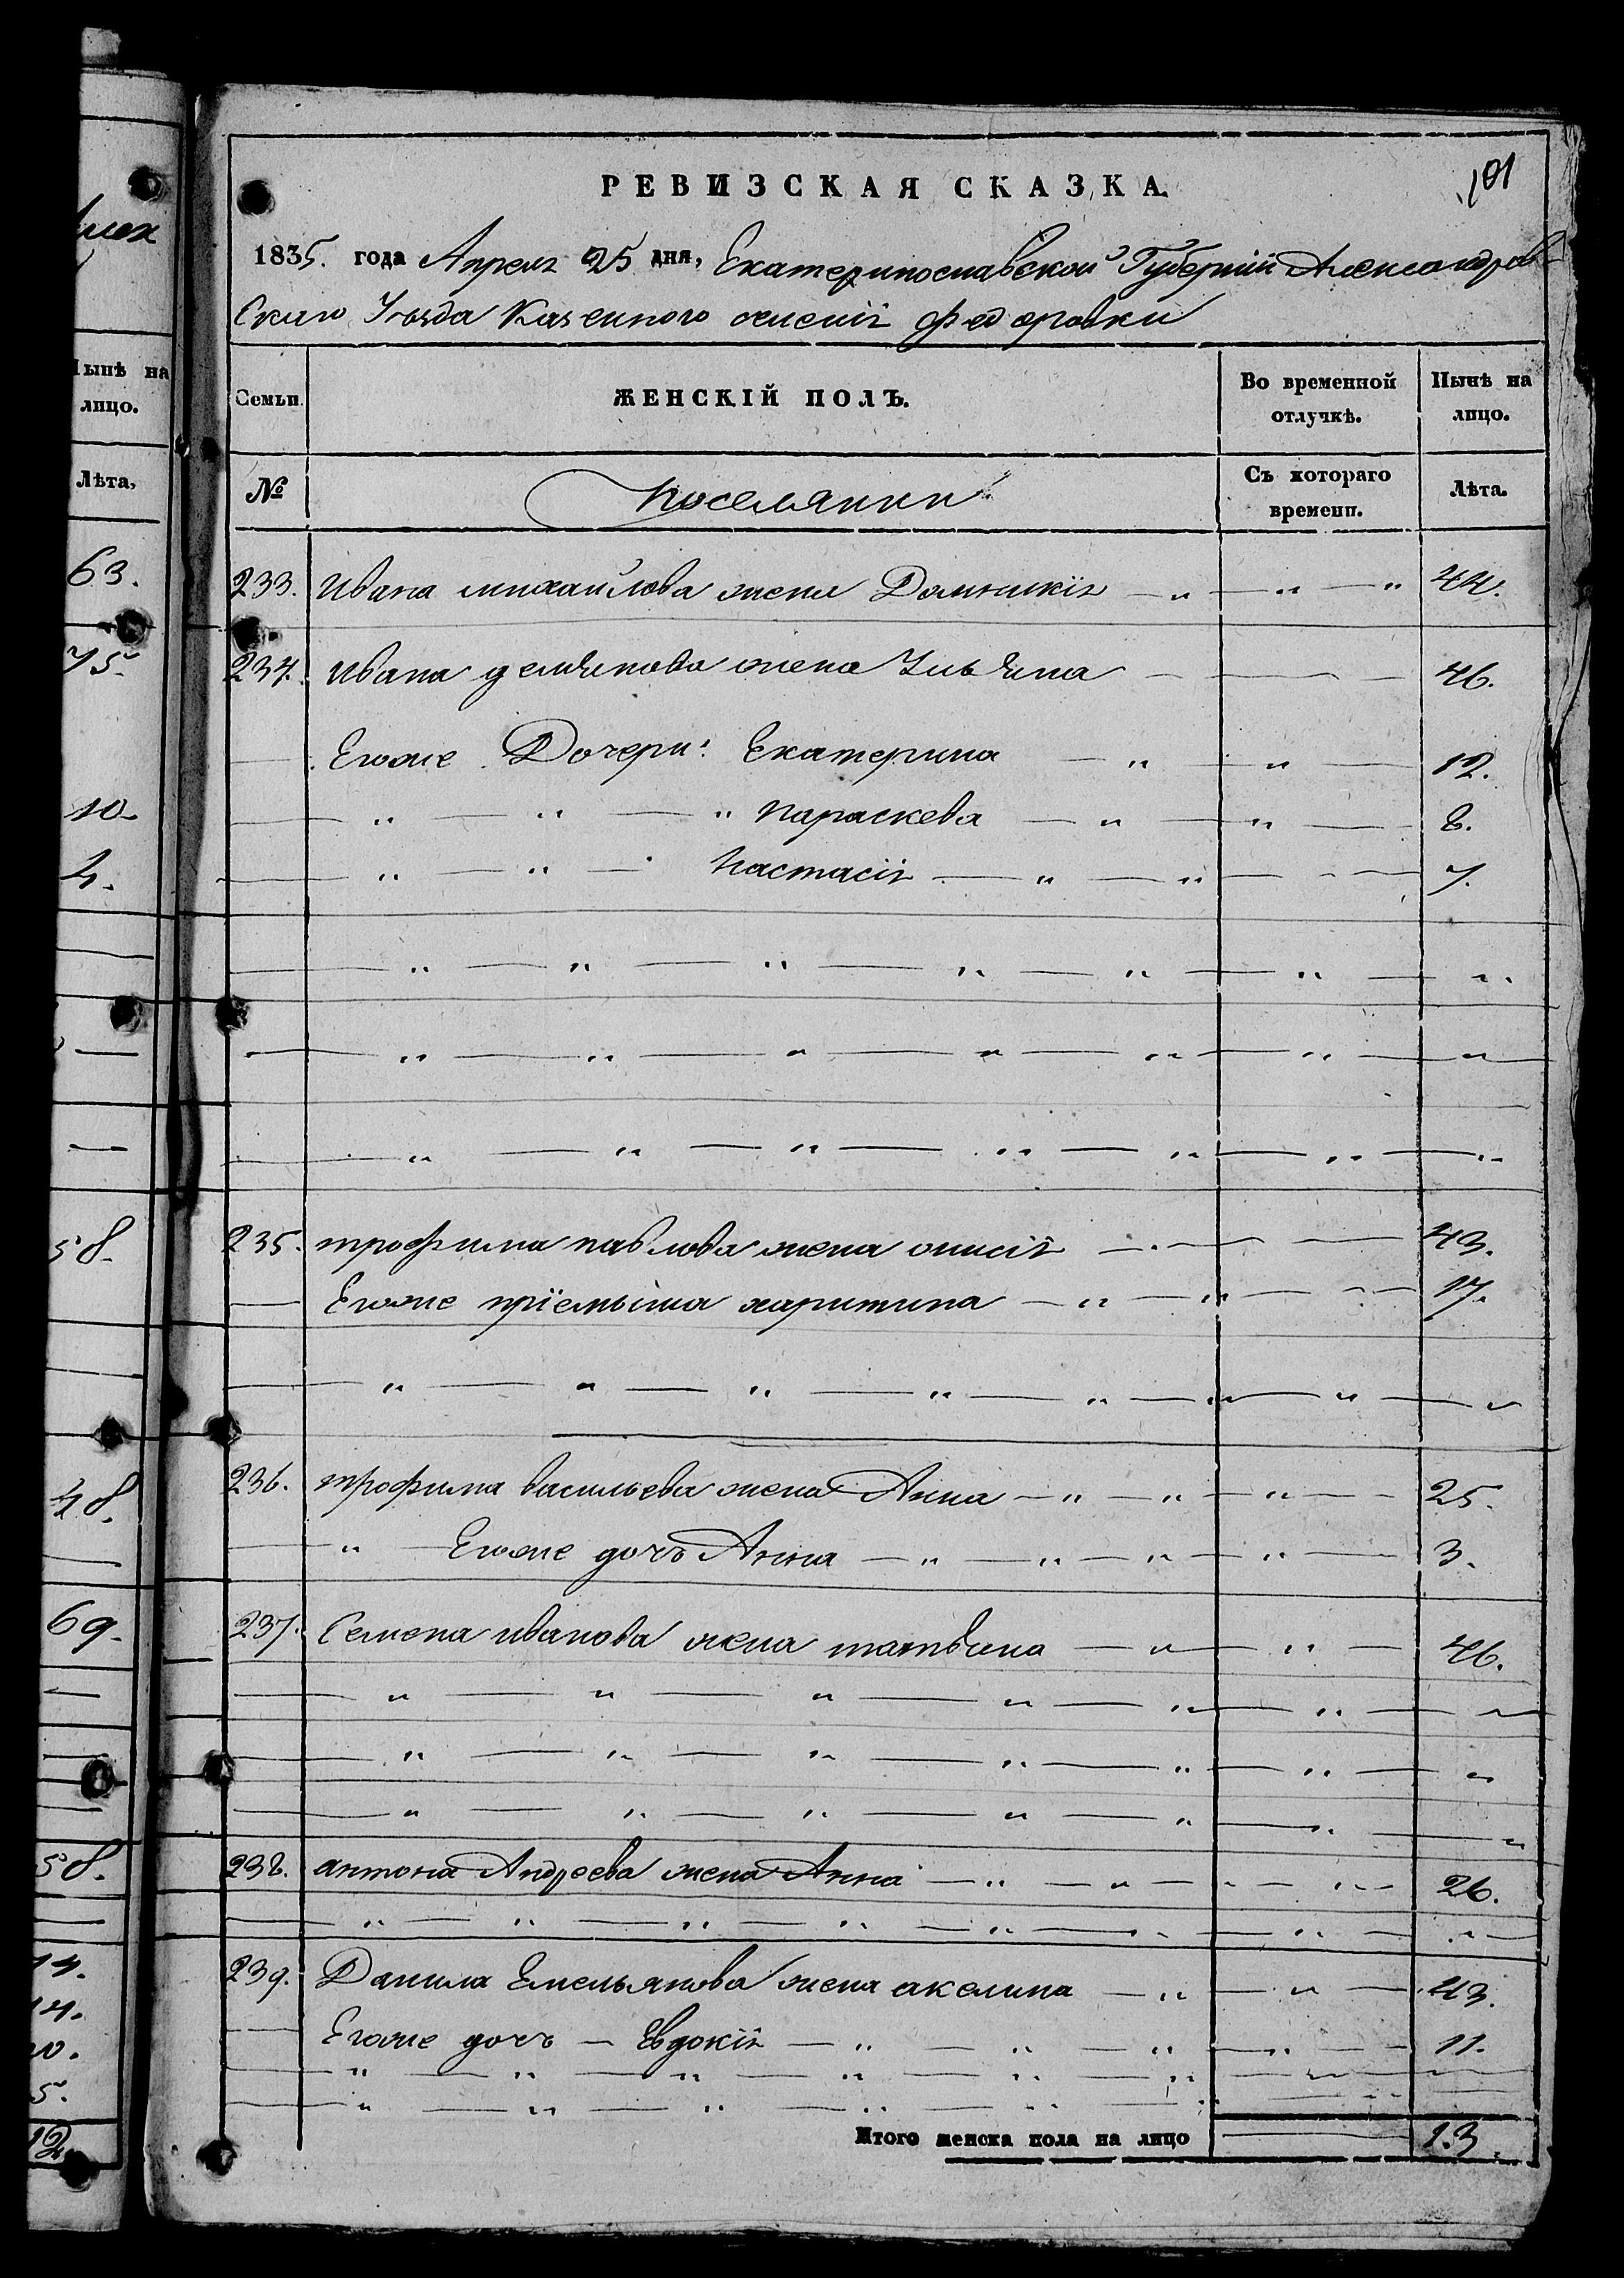 101
РЕВИЗСКАЯ СКАЗКА.
1835. года Апреля 25 дня, Екатеринославской Губернiи Александров-
скаго Уезда Казенного селенiя федоровки
Нынѣ на
лицо.
Лѣта,
63.
75.
10.
4.
58.
48.
69.
58.
14.
5.
12.
Семьи. ЖЕНСКІЙ ПОЛЪ. Во временной отлучкѣ. Нынѣ на лицо.
№ поселянки Съ котораго времени. Лѣта.
233. Ивана михайлова жена Домникiя — „ — „ — „ 44.
234. Ивана демьянова жена Ульяна — — — 46.
Егоже Дочери: Екатерина — „ — „ — 12.
— „ — „ — „ параскева — „ — „ — 8.
— „ — „ — Настасiя — „ — „ — 7.
— „ — „ — „ — „ — „ — „ — „
— „ — „ — „ — „ — „ — „ — „
— „ — „ — „ — „ — „ — „ — „
235. трофима павлова жена онисiя — — — 43.
— Егоже прiемыша харитина — „ — „ — 17.
— „ — „ — „ — „ — „ — „ — „ — „
236. трофима васильева жена Анна — „ — „ — „ — 25.
— „ — Егоже дочь Анна — „ — „ — „ — „ — 3.
237. Семена иванова жена татьяна — „ — „ — 46.
— „ — „ — „ — „ — „ — „ — „
— „ — „ — „ — „ — „ — „ — „
— „ — „ — „ — „ — „ — „ — „
238. антона Андреева жена Анна — „ — „ — „ — 26.
— „ — „ — „ — „ — „ — „ — „ — „
239. Данила Емельянова жена акелина — „ — „ — 43.
— Егоже дочь — Евдокiя — „ — „ — „ — „ — 11.
— „ — „ — „ — „ — „ — „ — „ —
— „ — „ — „ — „ — „ — „ —
Итого женска пола на лицо — 13.